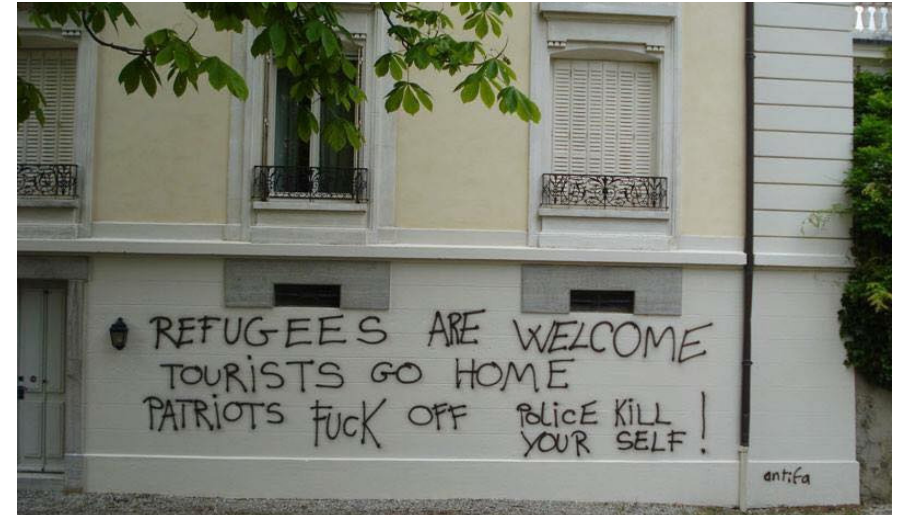 REFUGEES ARE WELCOME
TOURiSTS GO HOME
PATRiOTS FUCK OFF POLiCE KiLL
YOUR SELF!
antifa